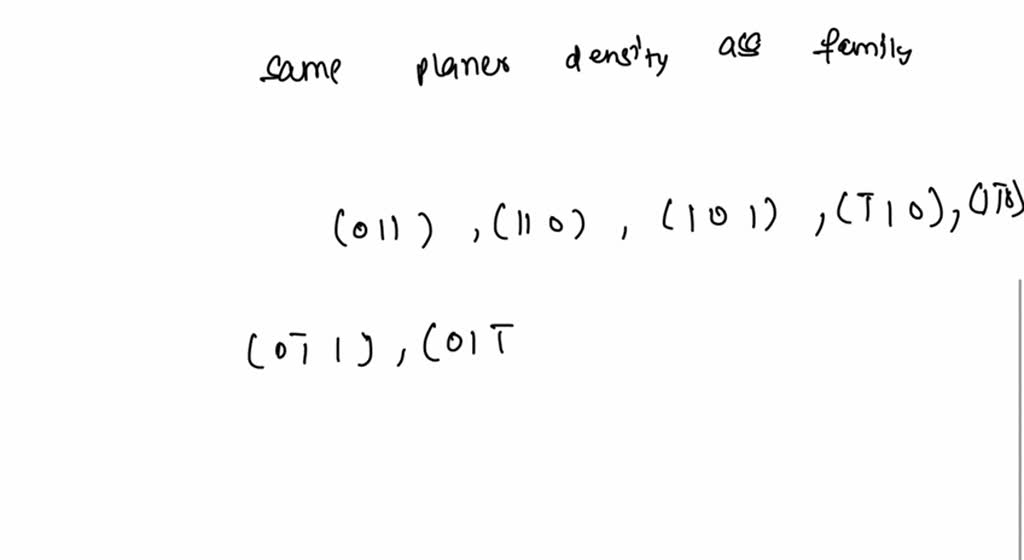 same planer density as family
(011), (110), (101), (1̅10), (11̅0)
(01̅1), (011̅